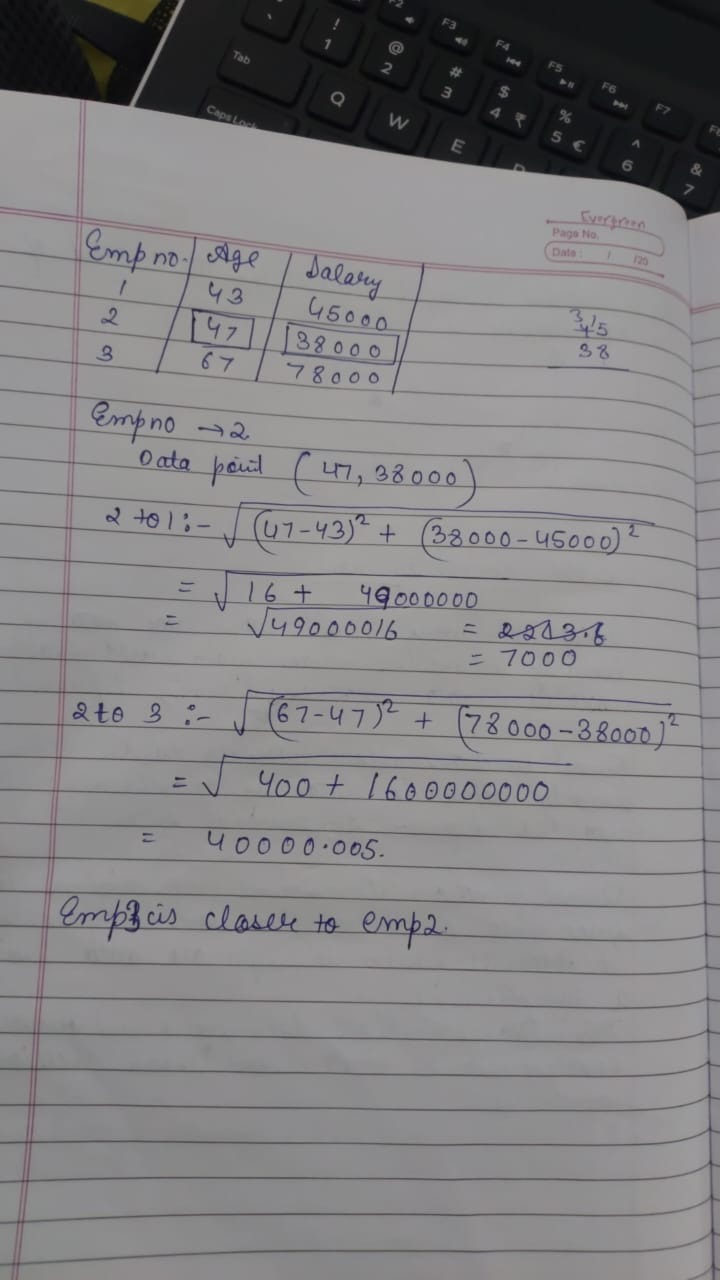 Tab
Caps Lock
! 1
@ 2
# 3
$ 4 ₹
% 5 €
^ 6
& 7
F2
F3
F4
F5
F6
F7
Q
W
E
Evergreen
Page No.
Date : / /20
Emp no. Age Salary
1 43 45000
2 47 38000
3 67 78000
45
38
Empno → 2
Data point (47, 38000)
2 to 1 :- √(47-43)² + (38000-45000)²
= √16 + 49000000
= √49000016 = 2213.6
= 7000
2 to 3 :- √(67-47)² + (78000-38000)²
= √400 + 1600000000
= 40000.005.
is closer to emp2.